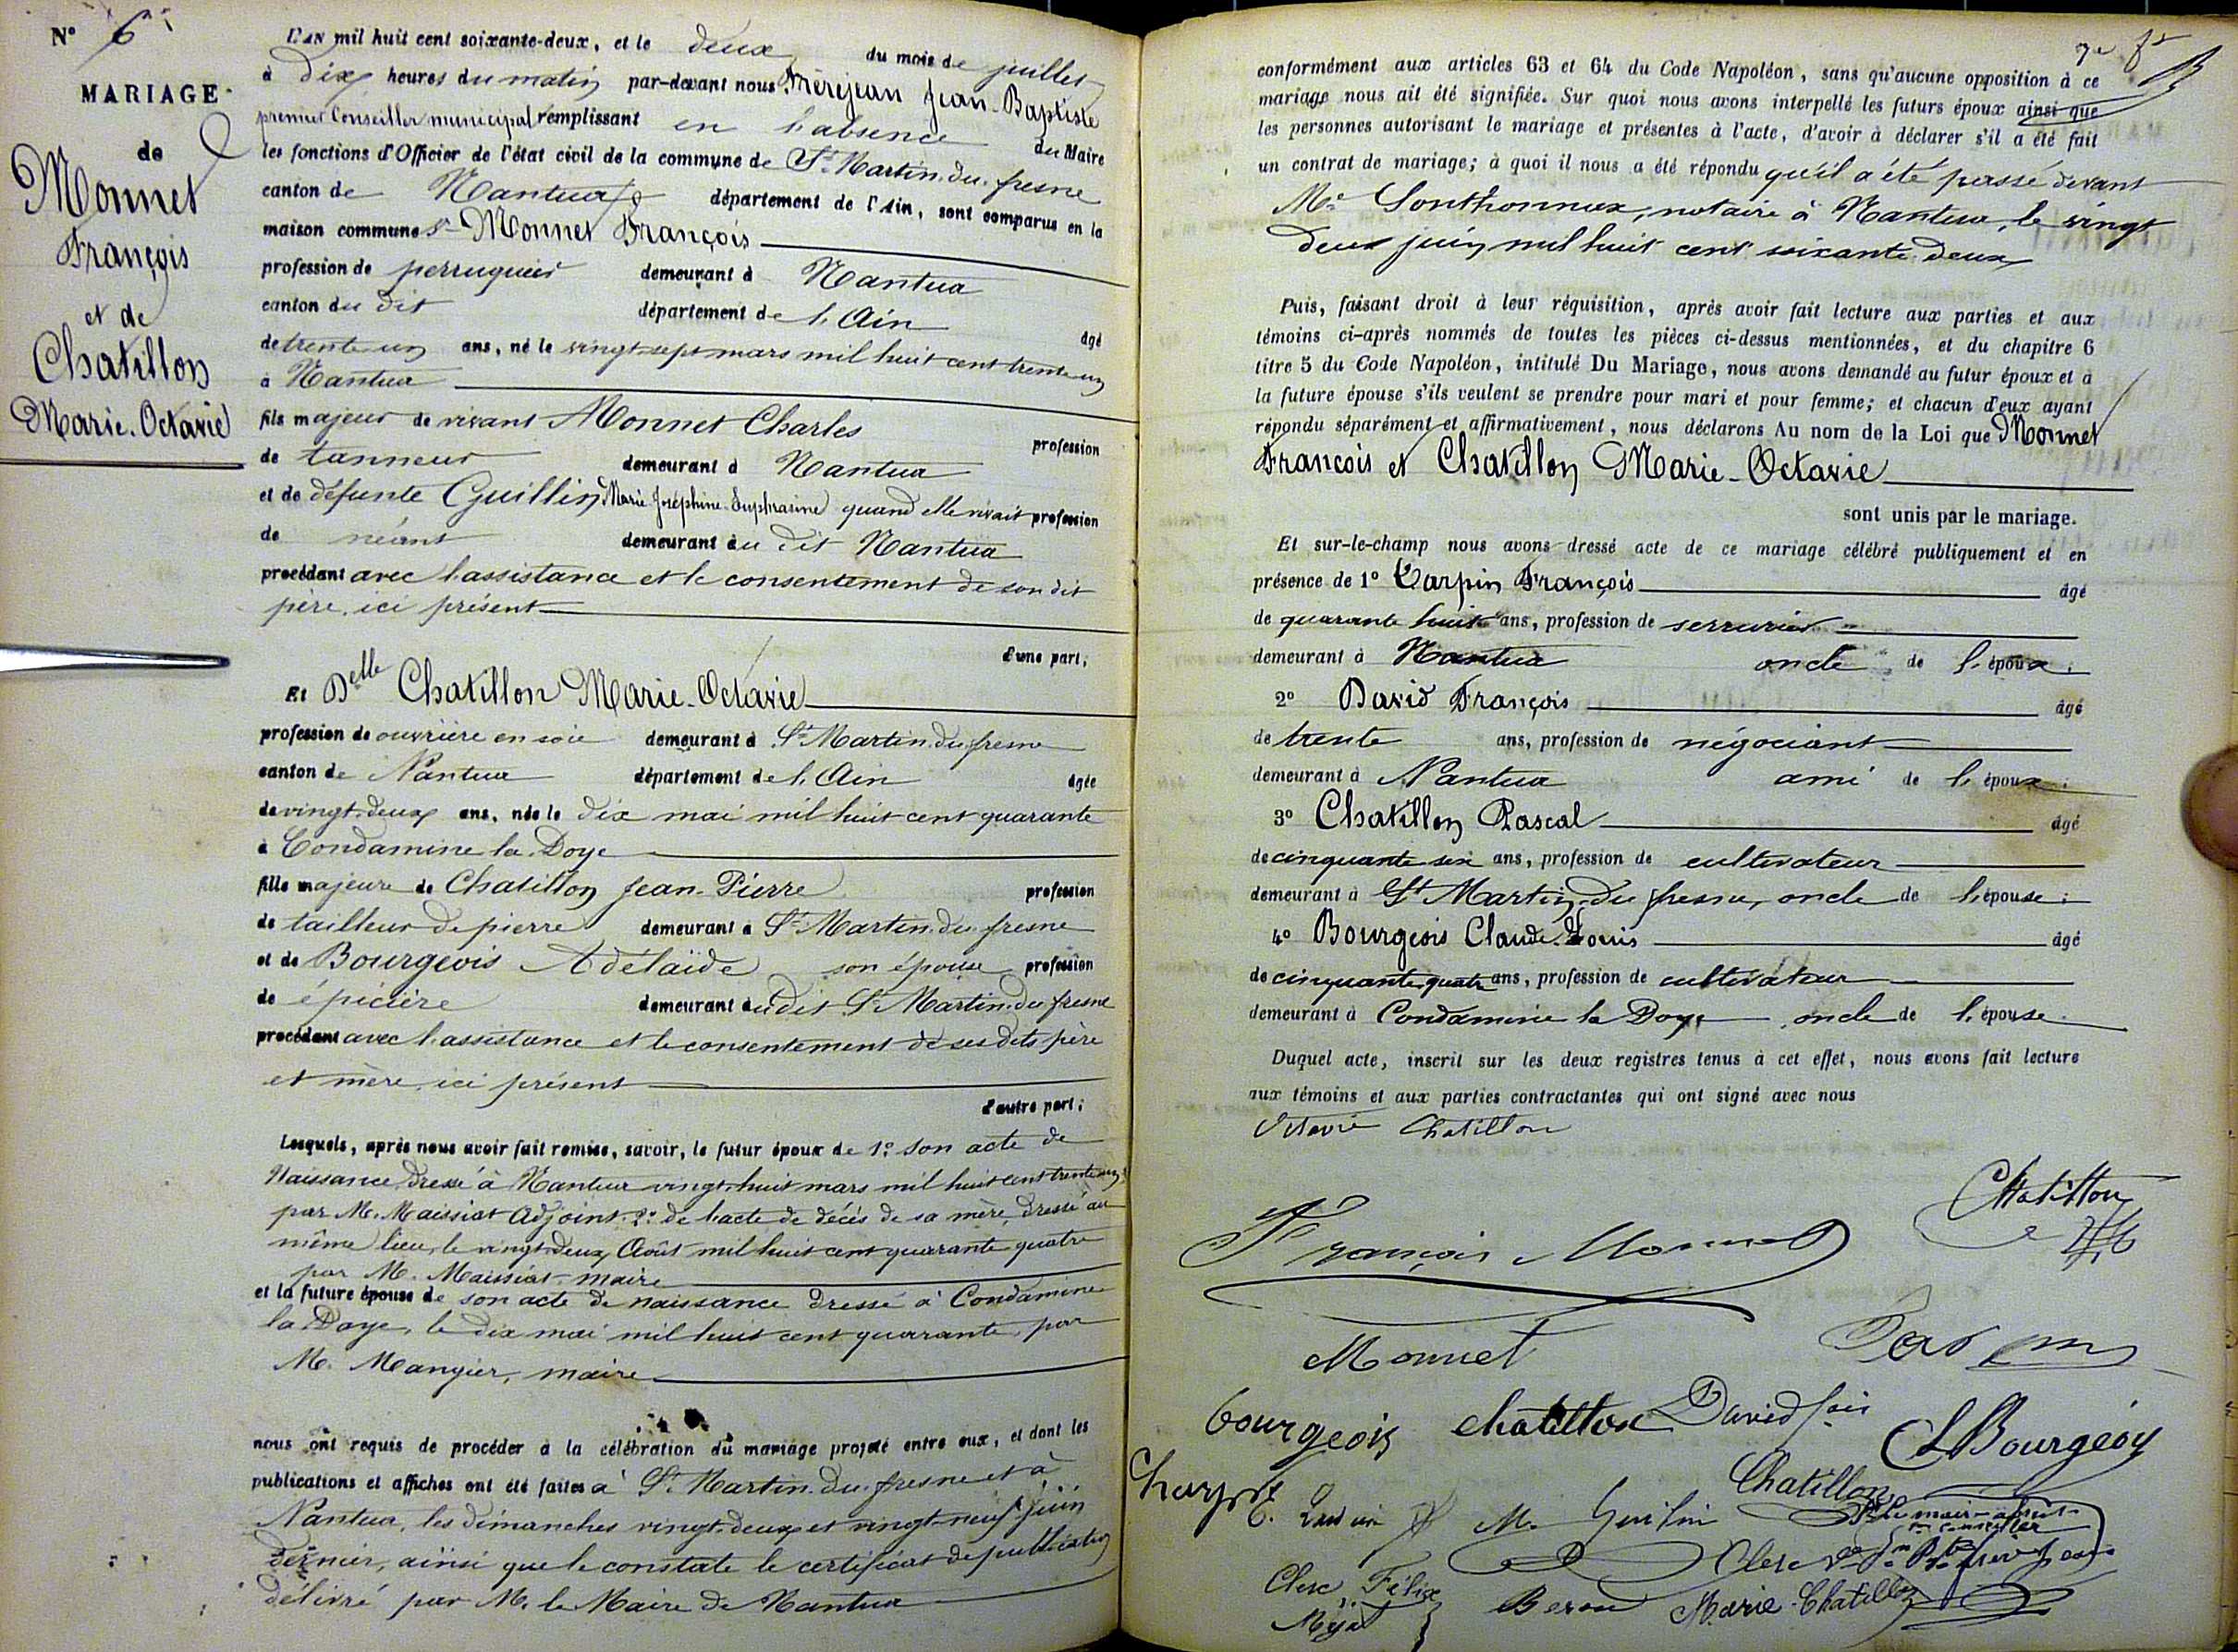 N° 6
MARIAGE
de
Monnet
François
et de
Chatillon
Marie-Octavie
L'AN mil huit cent soixante-deux, et le deux du mois de juillet
à dix heures du matin par-devant nous Mérejean Jean-Baptiste
premier Conseiller municipal remplissant en l'absence du Maire
les fonctions d'Officier de l'état civil de la commune de St Martin-du-fresne
canton de Nantua département de l'Ain, sont comparus en la
maison commune Sr Monnet François
profession de perruquier demeurant à Nantua
canton du dit département de l'Ain âgé
de trente un ans, né le vingt-sept mars mil huit cent trente un
à Nantua
fils majeur de vivant Monnet Charles profession
de tanneur demeurant à Nantua
et de défunte Guillin Marie Joséphine Euphrasine quand elle vivait profession
de néant demeurant au dit Nantua
procédant avec l'assistance et le consentement de son dit
père, ici présent
d'une part;
Et Delle Chatillon Marie-Octavie
profession de ouvrière en soie demeurant à St Martin-du-fresne
canton de Nantua département de l'Ain âgée
de vingt-deux ans, née le dix mai mil huit cent quarante
à Condamine la Doye
fille majeure de Chatillon Jean-Pierre profession
de tailleur de pierre demeurant à St Martin-du-fresne
et de Bourgeois Adélaïde son épouse profession
de épicière demeurant au dit St Martin-du-fresne
procédant avec l'assistance et le consentement de ses dits père
et mère, ici présent
d'autre part;
Lesquels, après nous avoir fait remise, savoir, le futur époux de 1° son acte de
Naissance dressé à Nantua vingt-huit mars mil huit cent trente un
par M. Maissiat Adjoint. 2° de l'acte de décès de sa mère, dressé au
même lieu, le vingt-deux Août mil huit cent quarante quatre
par M. Maissiat maire
et la future épouse de son acte de naissance dressé à Condamine
la Doye, le dix mai mil huit cent quarante, par
M. Mangier, maire
nous ont requis de procéder à la célébration du mariage projeté entre eux, et dont les
publications et affiches ont été faites à St Martin-du-fresne et à
Nantua, les dimanches vingt-deux et vingt-neuf juin
dernier, ainsi que le constate le certificat de publication
délivré par M. le Maire de Nantua
conformément aux articles 63 et 64 du Code Napoléon, sans qu'aucune opposition à ce
mariage nous ait été signifiée. Sur quoi nous avons interpellé les futurs époux ainsi que
les personnes autorisant le mariage et présentes à l'acte, d'avoir à déclarer s'il a été fait
un contrat de mariage; à quoi il nous a été répondu qu'il a été passé devant
Me Sonthonnax, notaire à Nantua, le vingt
deux juin mil huit cent soixante-deux
Puis, faisant droit à leur réquisition, après avoir fait lecture aux parties et aux
témoins ci-après nommés de toutes les pièces ci-dessus mentionnées, et du chapitre 6
titre 5 du Code Napoléon, intitulé Du Mariage, nous avons demandé au futur époux et à
la future épouse s'ils veulent se prendre pour mari et pour femme; et chacun d'eux ayant
répondu séparément et affirmativement, nous déclarons Au nom de la Loi que Monnet
François et Chatillon Marie-Octavie
sont unis par le mariage.
Et sur-le-champ nous avons dressé acte de ce mariage célébré publiquement et en
présence de 1° Carpin François âgé
de quarante huit ans, profession de serrurier
demeurant à Nantua oncle de l'époux;
2° David François âgé
de trente ans, profession de négociant
demeurant à Nantua ami de l'époux;
3° Chatillon Pascal âgé
de cinquante six ans, profession de cultivateur
demeurant à St Martin-du-fresne, oncle de l'épouse;
4° Bourgeois Claude-Louis âgé
de cinquante quatre ans, profession de cultivateur
demeurant à Condamine la Doye oncle de l'épouse
Duquel acte, inscrit sur les deux registres tenus à cet effet, nous avons fait lecture
aux témoins et aux parties contractantes qui ont signé avec nous
Octavie Chatillon
Chatillon
François Monnet
Monnet
bourgeois chatillon David fçois
CL Bourgeois
Chatillon
M. Guilin
Clerc Félix
Marie Chatillon